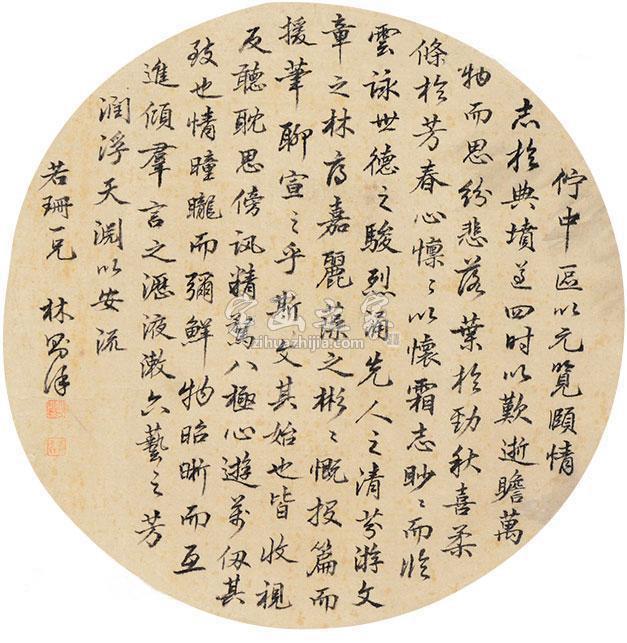 佇中區以元覽頤情
志於典墳遵四時以歎逝瞻萬
物而思紛悲落葉於勁秋喜柔
條於芳春心懍〻以懷霜志眇〻而臨
雲詠世德之駿烈誦先人之清芬游文
章之林府嘉麗藻之彬〻慨投篇而
援筆聊宣之乎斯文其始也皆收視
反聽耽思傍訊精騖八極心遊萬仞其
致也情曈曨而彌鮮物昭晰而互
進傾羣言之瀝液漱六藝之芳
潤浮天淵以安流
若珊一兄 林
字画之家
zihuazhijia.com